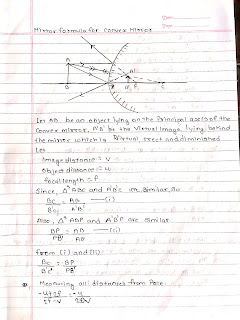 Mirror formula for Convex Mirror
Let AB be an object lying on the Principal axis of the
Convex mirror, A'B' be the Virtual Image lying behind
the mirror which is Virtual, erect and diminished
Let
Image distance = V
Object distance = u
focal length = f
Since, Δˢ ABC and A'B'C are Similar, So
BC = AB —(i)
B'C A'B'
Also, Δˢ ABP and A'B'P are similar
BP = AB —(ii)
PB' A'B'
from (i) and (ii)
BC = BP
B'C PB'
Measuring all distances from Pole
-u+2f = -u
2f-v